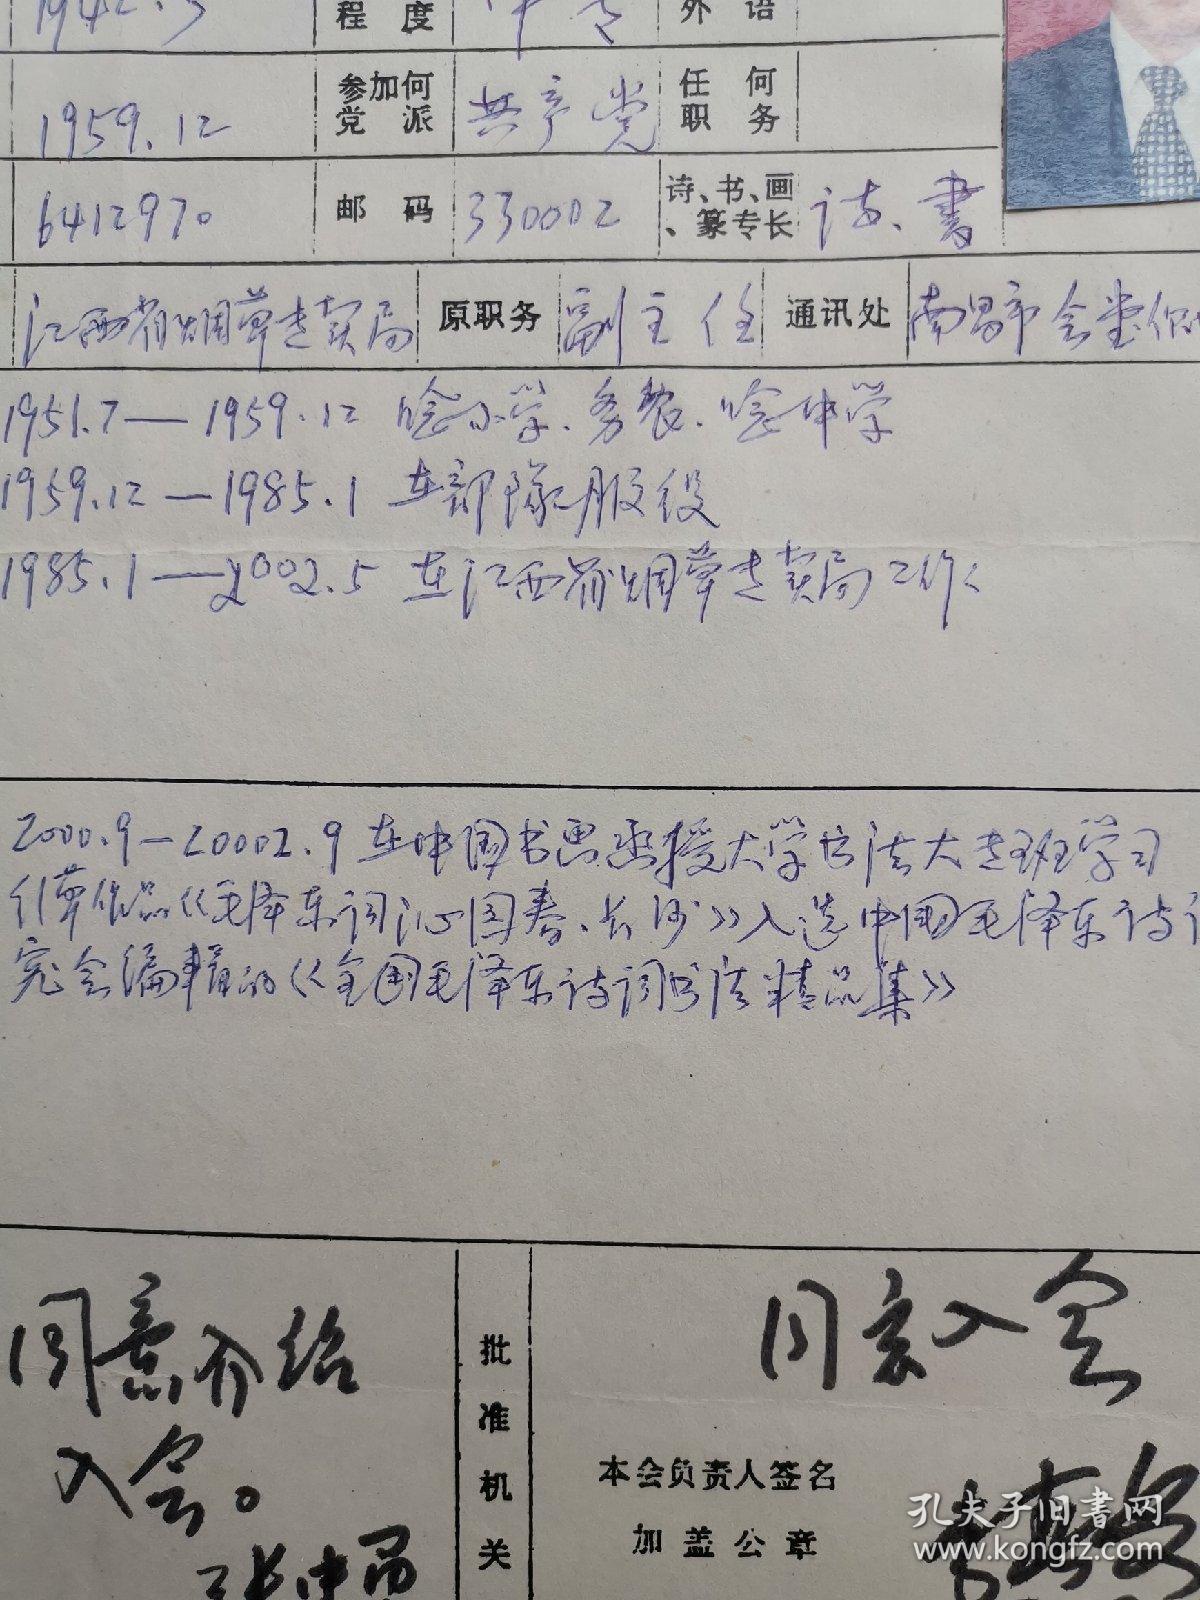 1942.5 程度 中专 外语
1959.12 参加何党派 共产党 任何职务
6412970 邮码 330002 诗、书、画、篆专长 诗、書
江西省烟草专卖局 原职务 副主任 通讯处 南昌市会堂
1951.7—1959.12 唸小学、务农、唸中学
1959.12—1985.1 在部隊服役
1985.1—2002.5 在江西省烟草专卖局工作
2000.9—20002.9 在中国书画函授大学书法大专班学习
行草作品《毛泽东词沁园春、长沙》入选中国毛泽东诗
究会编辑的《全国毛泽东诗词书法精品集》
同意介绍
入会。
批准机关
同意入会
本会负责人签名
加盖公章
孔夫子旧书网
www.kongfz.com